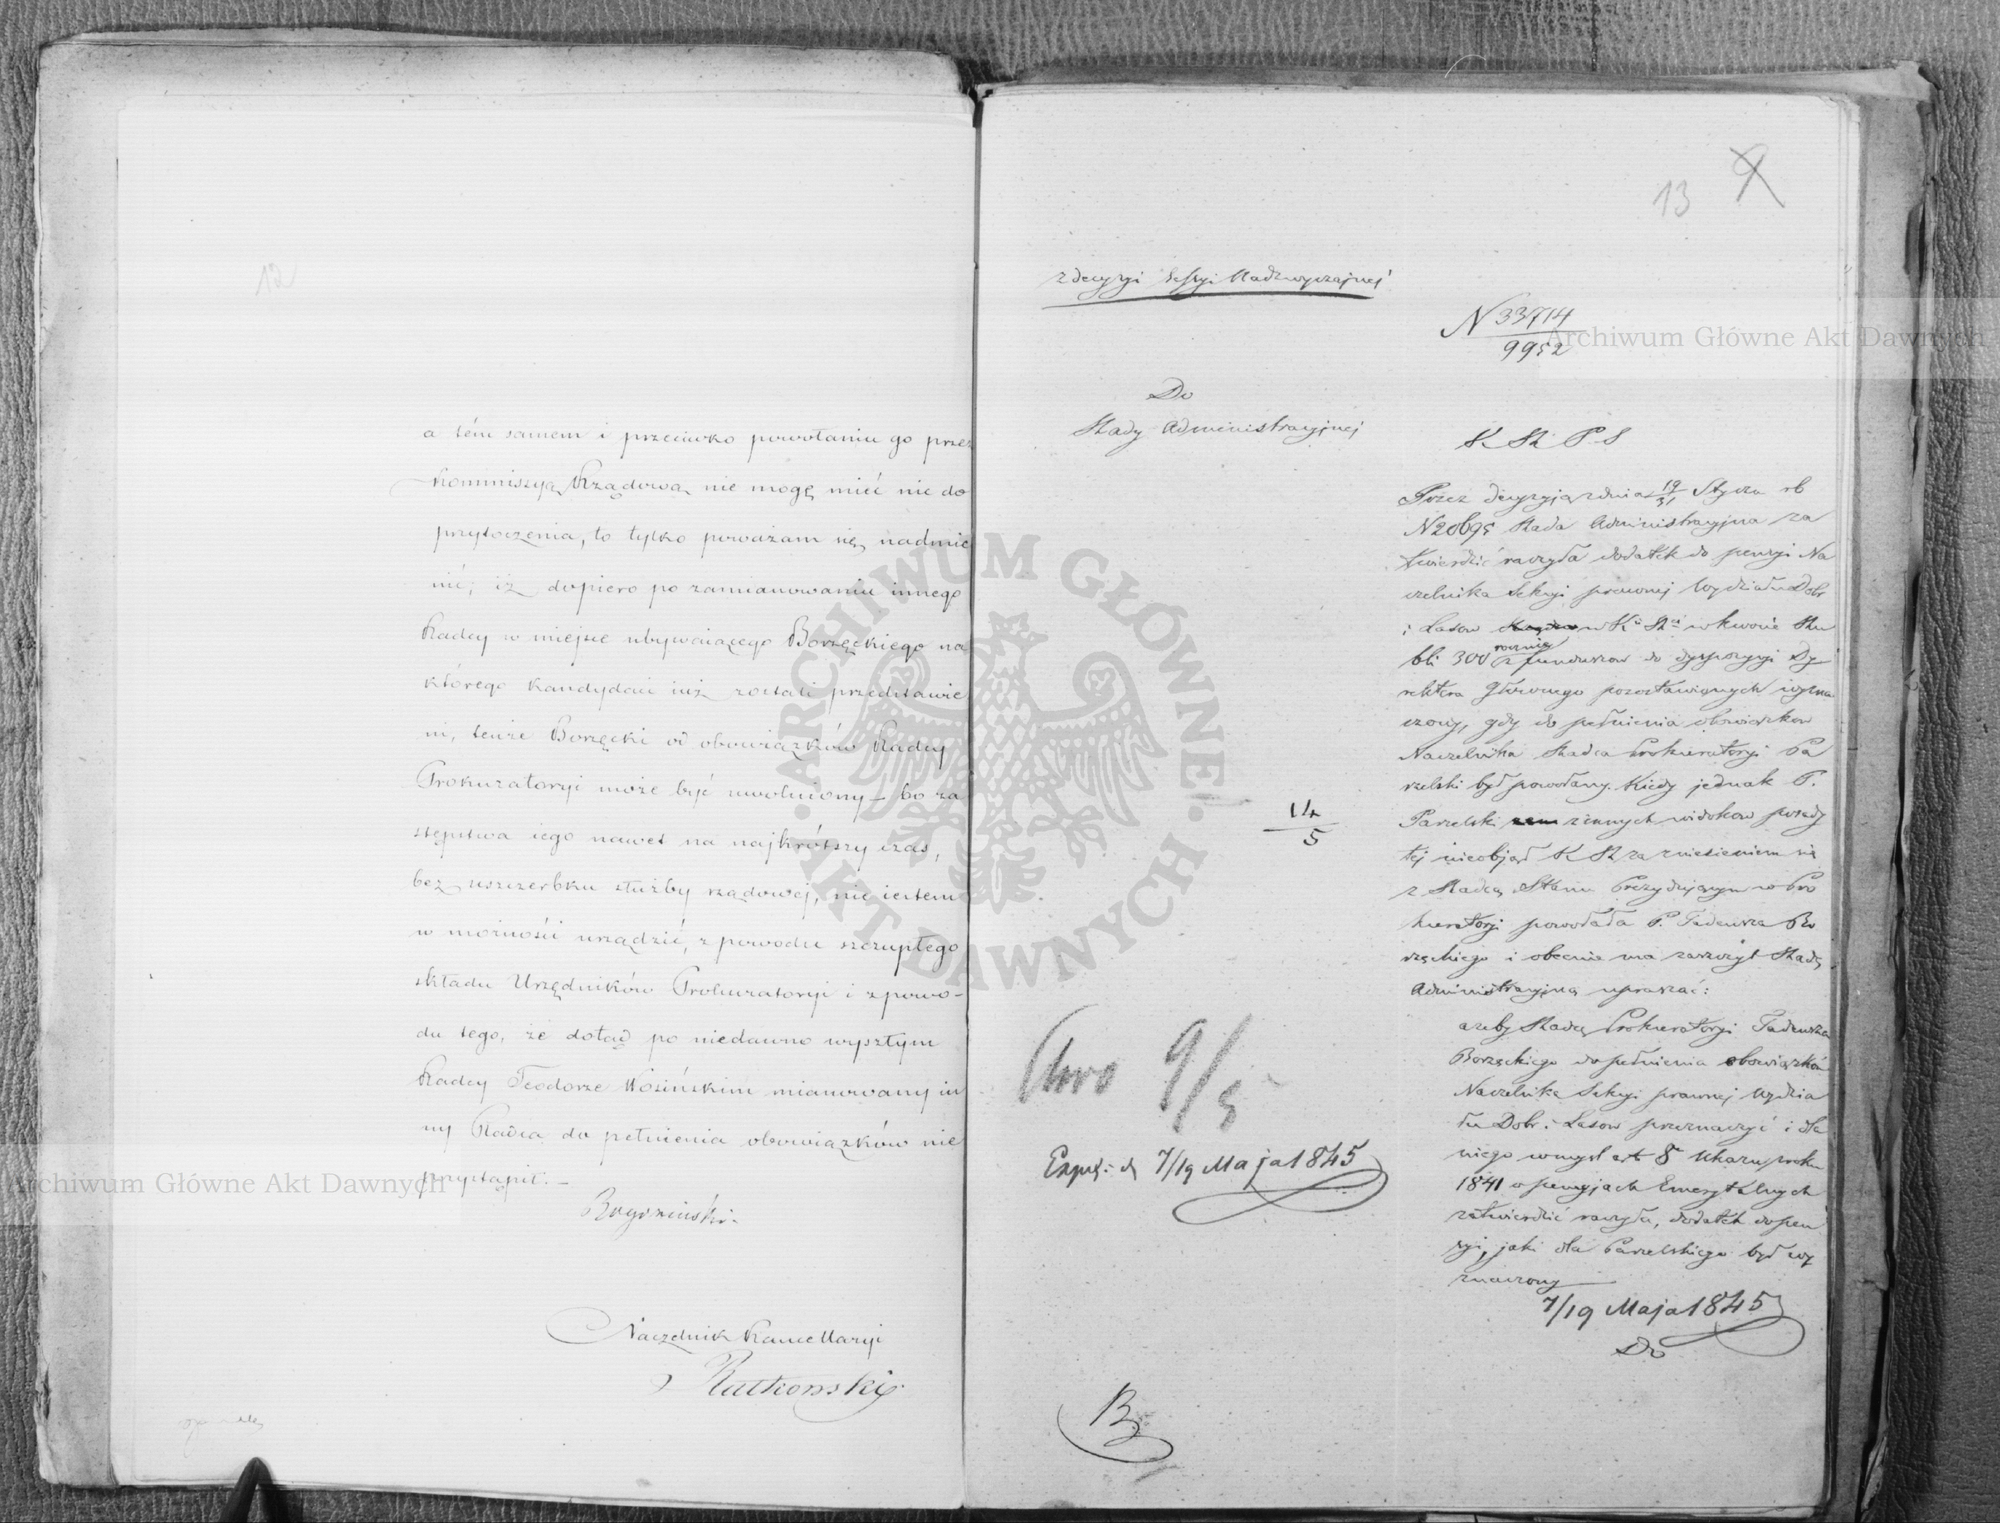 12
a tém samem i przeciwko powołaniu go przez
Kommissyą Rządową nie mogę mieć nic do
przytoczenia, to tylko poważam się nadmie
nić; iż dopiero po zamianowaniu innego
Radcy w miejsce ubywaiącego Borzęckiego na
którego kandydaci iuż zostali przedstawie
ni, tenże Borzęcki od obowiązków Radcy
Prokuratoryi może być uwolniony – bo za
stępstwa iego nawet na najkrótszy czas,
bez uszczerbku służby rządowej, nie iestem
w możności urządzić, z powodu szczupłego
składu Urzędników Prokuratoryi i z powo-
du tego, że dotąd po niedawno wyszłym
Radcy Teodorze Wosińskim mianowany in
ny Radca do pełnienia obowiązków nie
przystąpił. –
Naczelnik Kancellaryi
Ratkowski
13 9
z decyzyi Sessyi Nadzwyczajnej
N 33714
9952
Do
Rady Administracyjnej
K R P S
Przez decyzyją z dnia 19/31 Stycznia rb
N 20695 Rada Administracyjna za
twierdzić raczyła dodatek do pensyi Na
czelnika Sekcyi prawnej Wydziału Dobr
i Lasow w K R w kwocie Ru
bli 300 rocznie z funduszow do dyspozycyi Dy
rektora Głównego pozostawionych wyzna
czony, gdy do pełnienia obowiązkow
Naczelnika Radca Prokuratoryi Pa
rzelski był powołany. Kiedy jednak P.
Parzelski z innych widokow posady
tej nieobjął K R za zniesieniem się
z Radcą Stanu Prezydującym w Pro
kuratoryi powołała P. Tadeusza Bo
rzęckiego i obecnie ma zaszczyt Radę
Administracyjną upraszać:
14
5
ażeby Radcę Prokuratoryi Tadeusza
Borzęckiego do pełnienia obowiązków
Naczelnika Sekcyi prawnej Wydzia
łu Dobr i Lasow przeznaczyć i dla
niego w myśl art 8 Ukazu z roku
1841 o pensyjach Emerytalnych
zatwierdzić raczyła, dodatek do pen
syi, jaki dla Parzelskiego był wy
znaczony
9/5
Exped: d 7/19 Maja 1845
7/19 Maja 1845
B
Archiwum Główne Akt Dawnych
Archiwum Główne Akt Dawnych
ARCHIWUM GŁÓWNE · AKT DAWNYCH ·